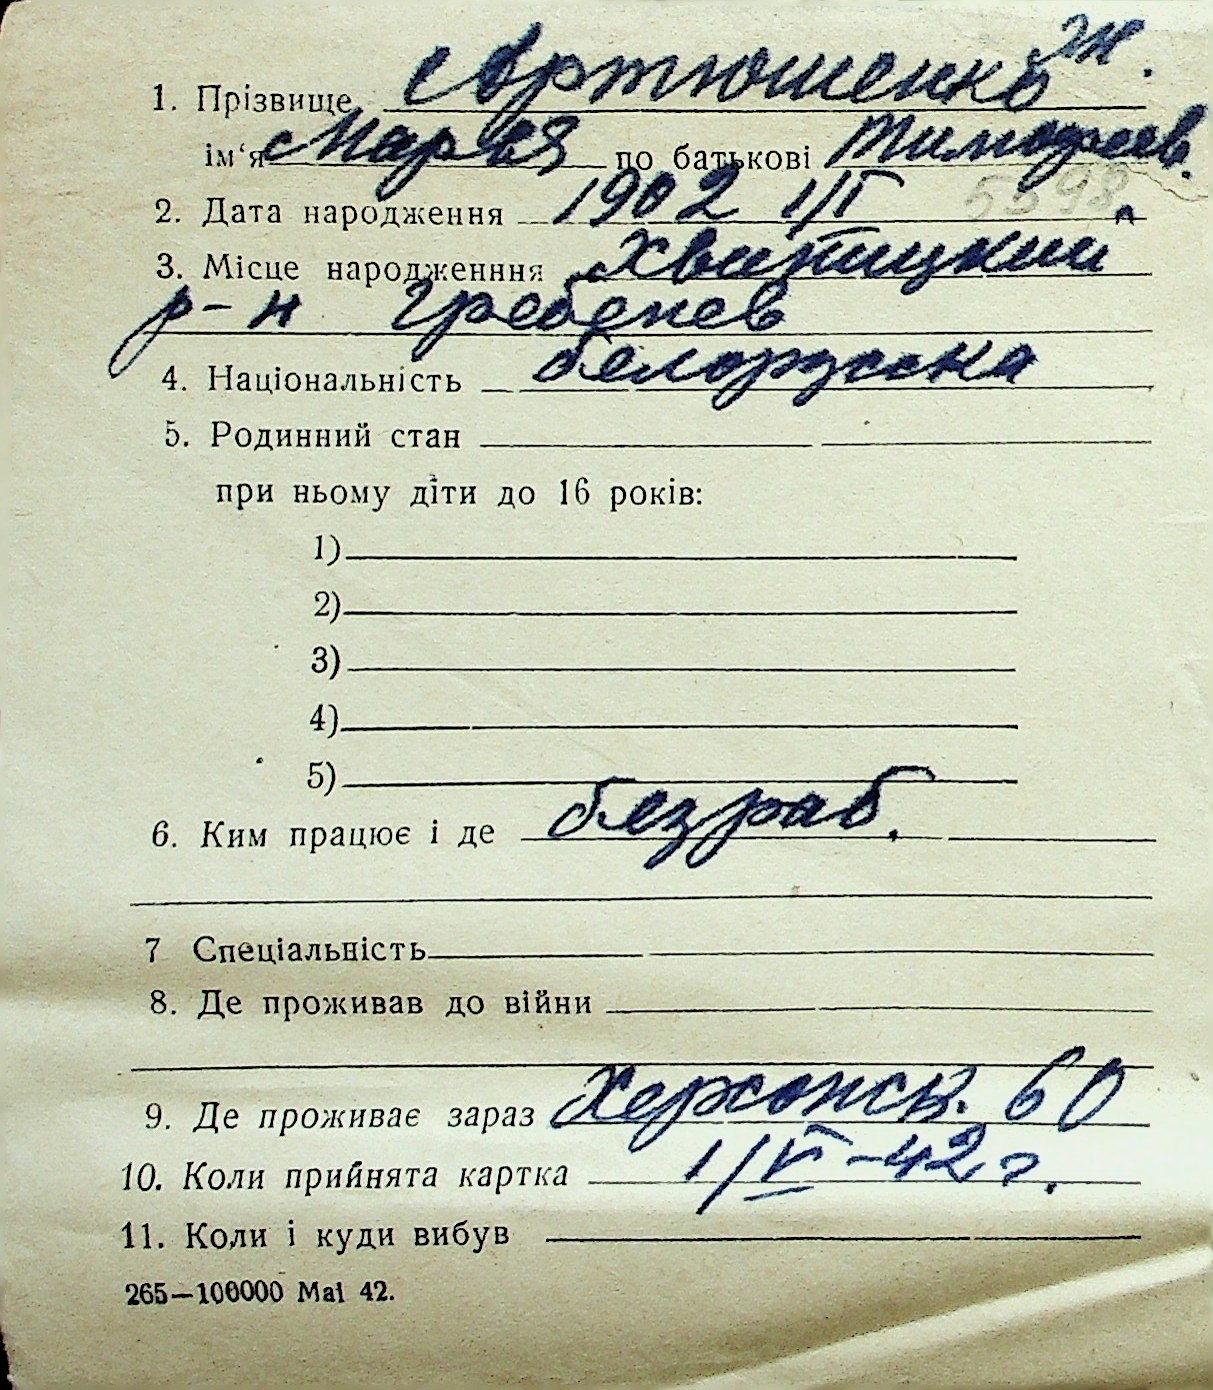 ж.
1. Прізвище Артюшенко
ім‘я Мария по батькові Тимофеев.
2. Дата народження 1902 1/I 5598
3. Місце народженння Хвитицкий
р-н Гребенев
4. Національність белорусска
5. Родинний стан
при ньому діти до 16 років:
1)
2)
3)
4)
5)
6. Ким працює і де безраб.
7 Спеціальність
8. Де проживав до війни
9. Де проживає зараз Херсонск. 60
10. Коли прийнята картка 1/VI-42 г.
11. Коли і куди вибув
265—100000 Mai 42.